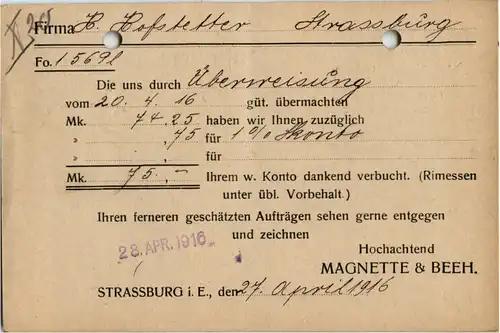 Firma H. Hofstetter Strassburg
Fo. 1569
Die uns durch Überweisung
vom 20. 4. 16 güt. übermachten
Mk. 74.25 haben wir Ihnen zuzüglich
" ,75 für 1% Skonto
" , für
Mk. 75,- Ihrem w. Konto dankend verbucht. (Rimessen
unter übl. Vorbehalt.)
Ihren ferneren geschätzten Aufträgen sehen gerne entgegen
und zeichnen
28. APR. 1916
Hochachtend
MAGNETTE & BEEH.
STRASSBURG i. E., den 27. April 1916